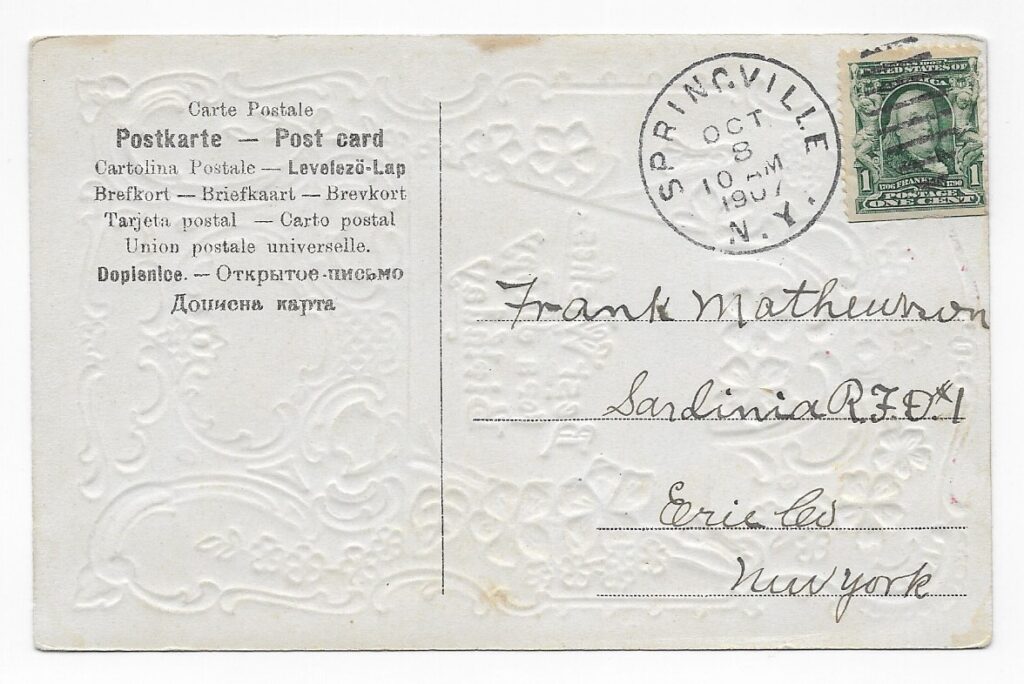 Carte Postale
Postkarte — Post card
Cartolina Postale — Levelező-Lap
Brefkort — Briefkaart — Brevkort
Tarjeta postal — Carto postal
Union postale universelle.
Dopisnice. — Открытое-письмо
Дописна карта
SPRINGVILLE
OCT
8
10 AM
1907
N.Y.
UNITED STATES OF
1 FRANKLIN 1
POSTAGE
ONE CENT
Frank Mathewson
Sardinia R.F.D. #1
Erie Co
New York